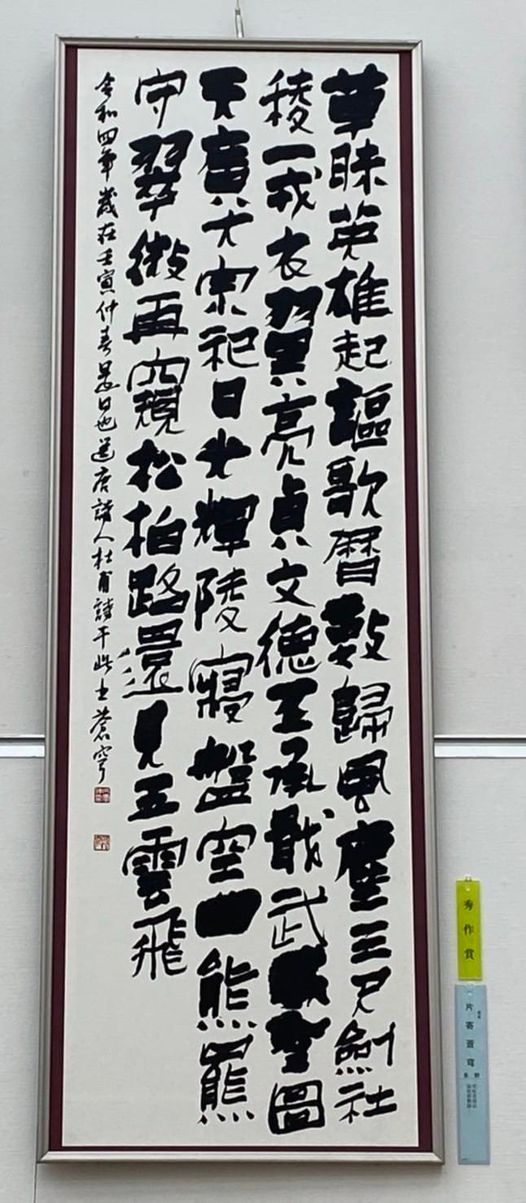 草昧英雄起謳歌暦數歸風塵三尺劍社
稷一戎衣翼亮貞文德丕承戢武威聖圖
天廣大宗祀日光輝陵寢盤空曲熊羆
守翠微再窺松柏路還見五雲飛
令和四年歲在壬寅仲春是日也選唐詩人杜甫詩于此 蒼穹
秀作賞
片寄蒼穹